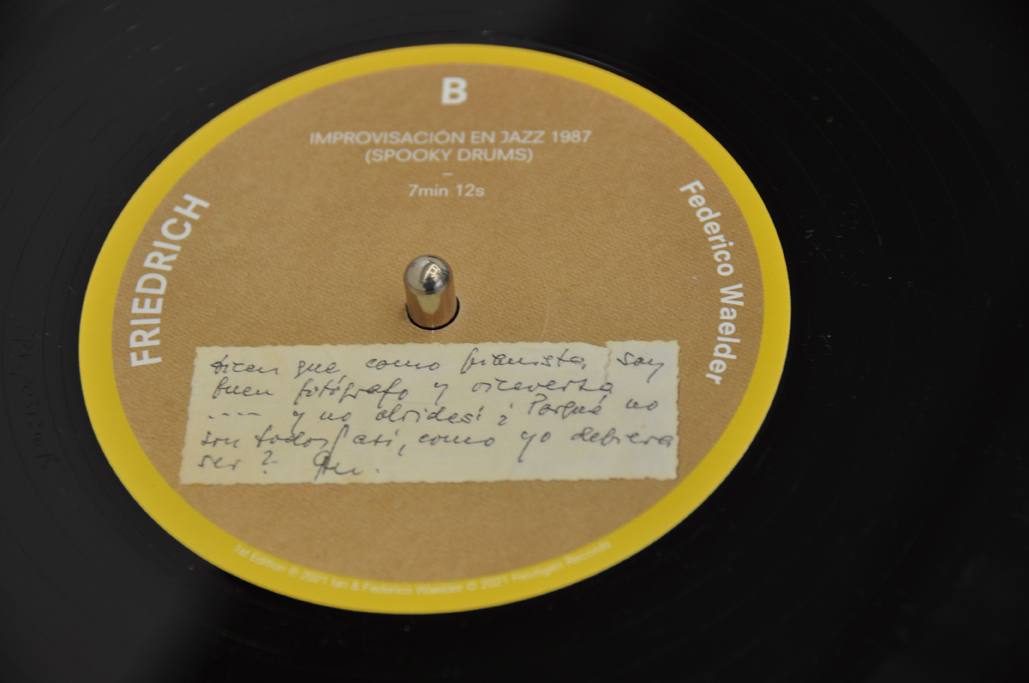 B
IMPROVISACIÓN EN JAZZ 1987
(SPOOKY DRUMS)
–
7min 12s
FRIEDRICH
Federico Waelder
dicen que como pianista, soy
buen fotógrafo y viceversa
---- y no olvides! ¿ Porqué no
son todos así, como yo debiera
ser ?
1st Edition ℗ 2021 Ian & Federico Waelder © 2021 Records